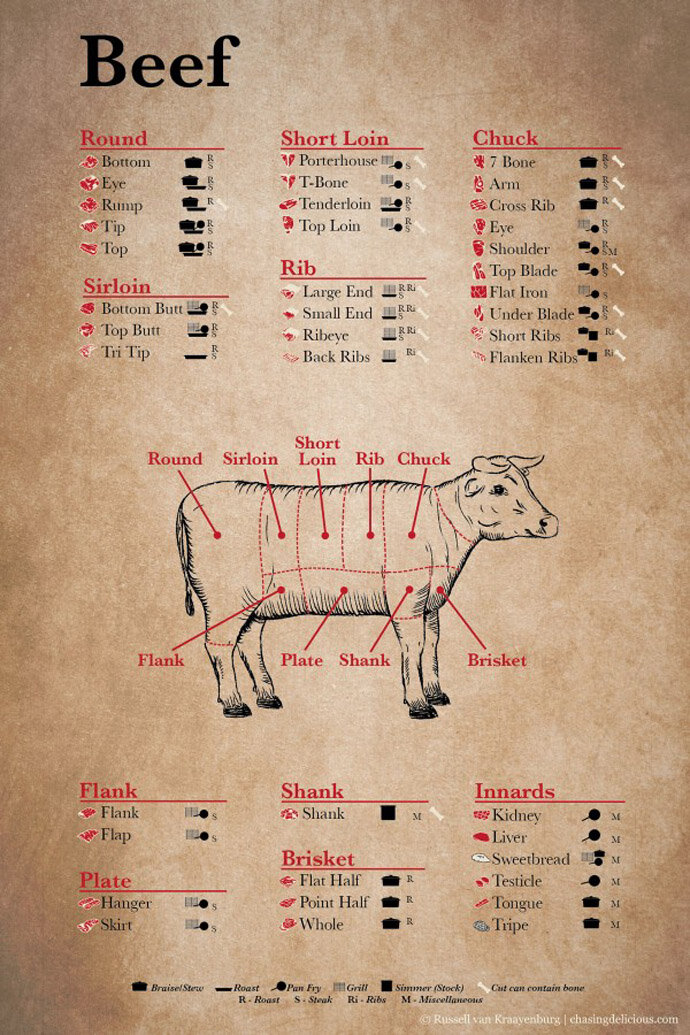 Beef
Round
Bottom R S
Eye R S
Rump R
Tip R S
Top R S
Sirloin
Bottom Butt R S
Top Butt R S
Tri Tip R S
Short Loin
Porterhouse S
T-Bone S
Tenderloin R S
Top Loin S
Rib
Large End R S Ri
Small End R S Ri
Ribeye R S Ri
Back Ribs Ri
Chuck
7 Bone R S
Arm R S
Cross Rib R S
Eye R S
Shoulder R S M
Top Blade R S
Flat Iron S
Under Blade R S
Short Ribs Ri
Flanken Ribs Ri
Short
Round Sirloin Loin Rib Chuck
Flank Plate Shank Brisket
Flank
Flank S
Flap S
Plate
Hanger S
Skirt S
Shank
Shank M
Brisket
Flat Half R
Point Half R
Whole R
Innards
Kidney M
Liver M
Sweetbread M
Testicle M
Tongue M
Tripe M
Braise/Stew Roast Pan Fry Grill Simmer (Stock) Cut can contain bone
R - Roast S - Steak Ri - Ribs M - Miscellaneous
© Russell van Kraayenburg | chasingdelicious.com